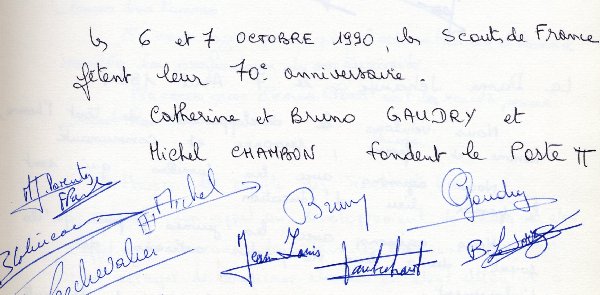 les 6 et 7 OCTOBRE 1990, les Scouts de France
fêtent leur 70e anniversaire.
Catherine et Bruno GAUDRY et
Michel CHAMBON fondent le Poste π
Michel
Bruno
Gaudry
Lechevalier
Jean Louis